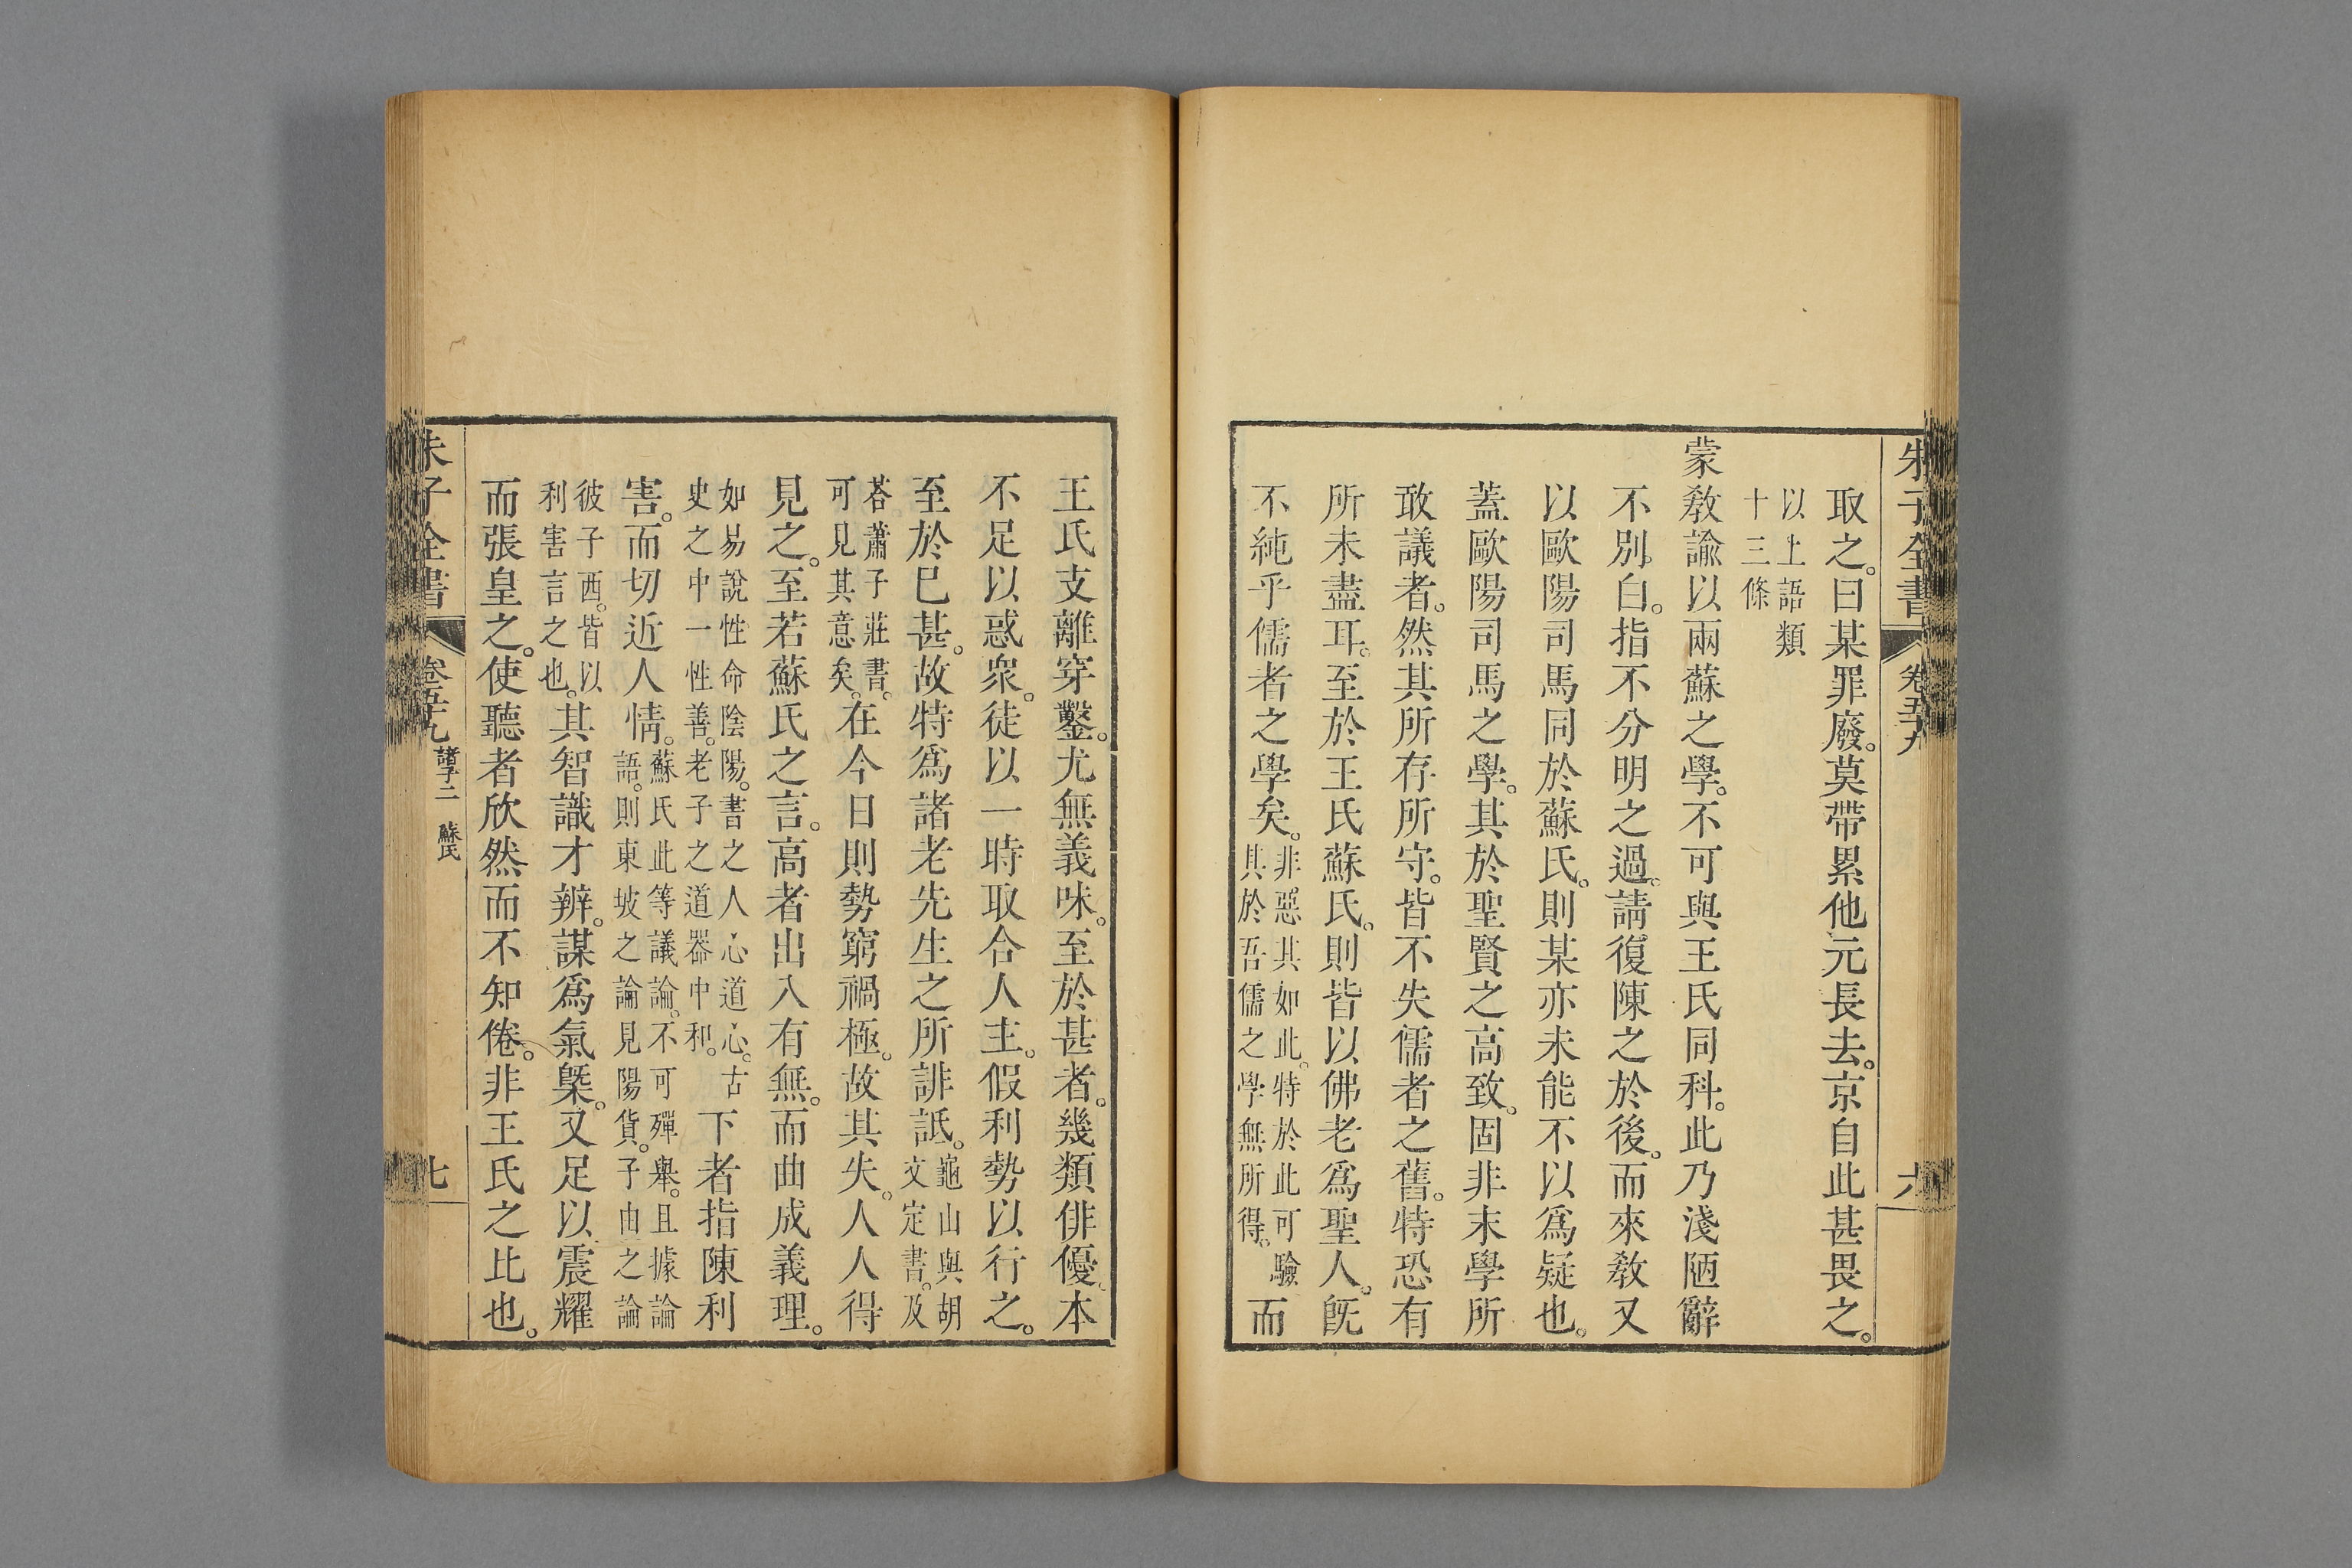 朱子全書 卷五十九 六
取之。曰某罪廢。莫帶累他元長去。京自此甚畏之。
以上語類
十三條
蒙教諭以兩蘇之學。不可與王氏同科。此乃淺陋辭
不別白。指不分明之過。請復陳之於後。而來教又
以歐陽司馬同於蘇氏。則某亦未能不以爲疑也。
蓋歐陽司馬之學。其於聖賢之高致。固非末學所
敢議者。然其所存所守。皆不失儒者之舊。特恐有
所未盡耳。至於王氏蘇氏。則皆以佛老爲聖人。旣
不純乎儒者之學矣。非惡其如此。特於此可驗其於吾儒之學無所得。而
王氏支離穿鑿。尤無義味。至於甚者。幾類俳優。本
不足以惑衆。徒以一時取合人主。假利勢以行之。
至於已甚。故特爲諸老先生之所誹詆。龜山與胡文定書。及
荅蕭子莊書。可見其意矣。在今日則勢窮禍極。故其失。人人得
見之。至若蘇氏之言。高者出入有無。而曲成義理。
如易說性命陰陽。書之人心道心。古史之中一性善。老子之道器中和。下者指陳利
害。而切近人情。蘇氏此等議論。不可殫舉。且據論語。則東坡之論見陽貨。子由之論
彼子西。皆以利害言之也。其智識才辨。謀爲氣槩。又足以震耀
而張皇之。使聽者欣然而不知倦。非王氏之比也。
朱子全書 卷五十九 諸子二 蘇氏 七